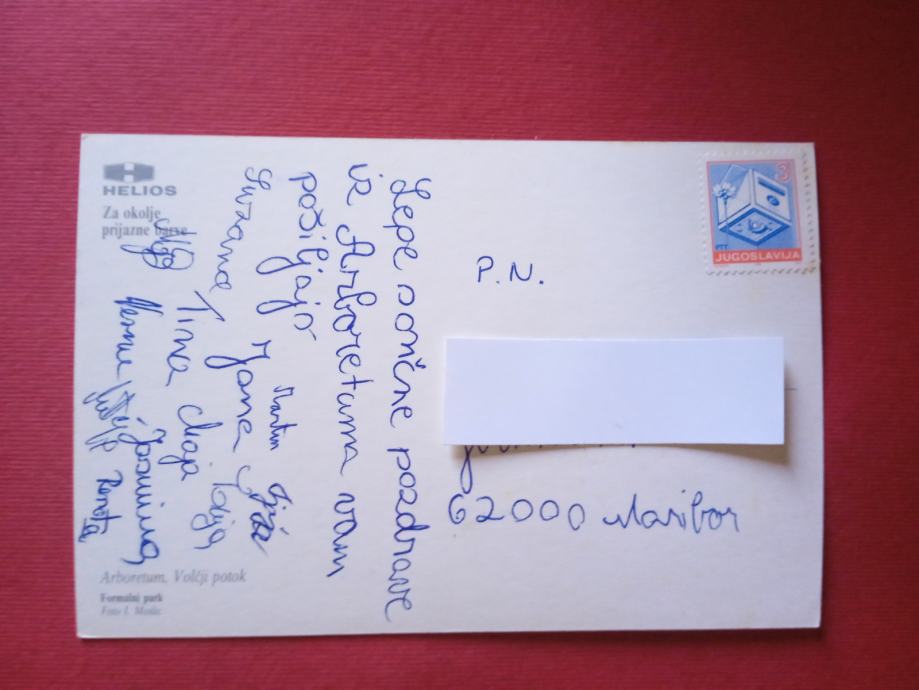 HELIOS
Za okolje
prijazne barve
Lepe sončne pozdrave
iz Arboretuma vam
pošiljajo
Martin
Suzana Jana
Tina Maja
Jasmina
Renata
Arboretum, Volčji potok
Formalni park
3
PTT
JUGOSLAVIJA
P.N.
62000 Maribor